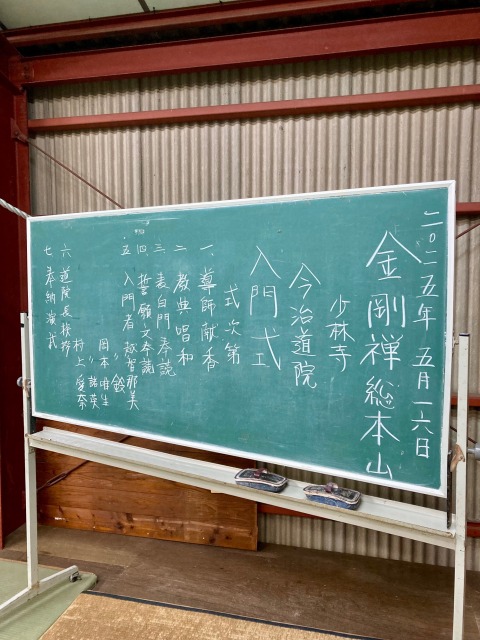 二〇二五年 五月一六日
金剛禅総本山
少林寺
今治道院
入門式
式次第
一、導師献香
二 教典唱和
三、表白門奉読
四、誓願文奉読
五 入門者 越智那美
〃 鈴
岡本唯生
〃 諸英
村上愛奈
六 道院長挨拶
七 奉納演武